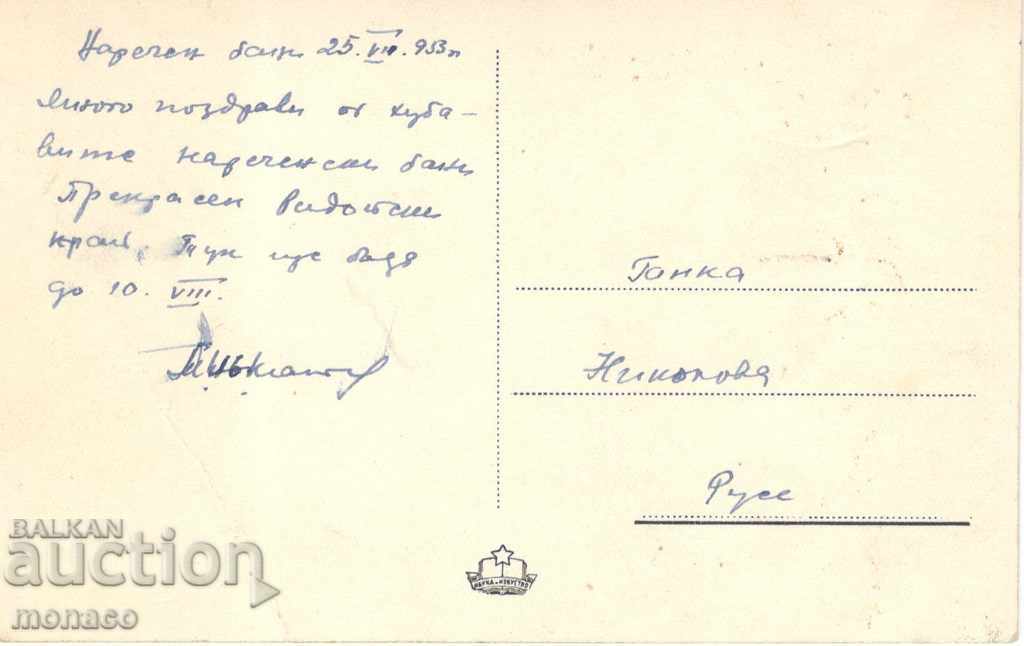 Наречен бани 25. VII. 953г
Много поздрави от хуба-
вите нареченски бани
Прекрасен родопски
край. Тук ще бъдя
до 10. VIII.
Ганка
Николова
Русе
НАУКА И ИЗКУСТВО
BALKAN
auction
monaco